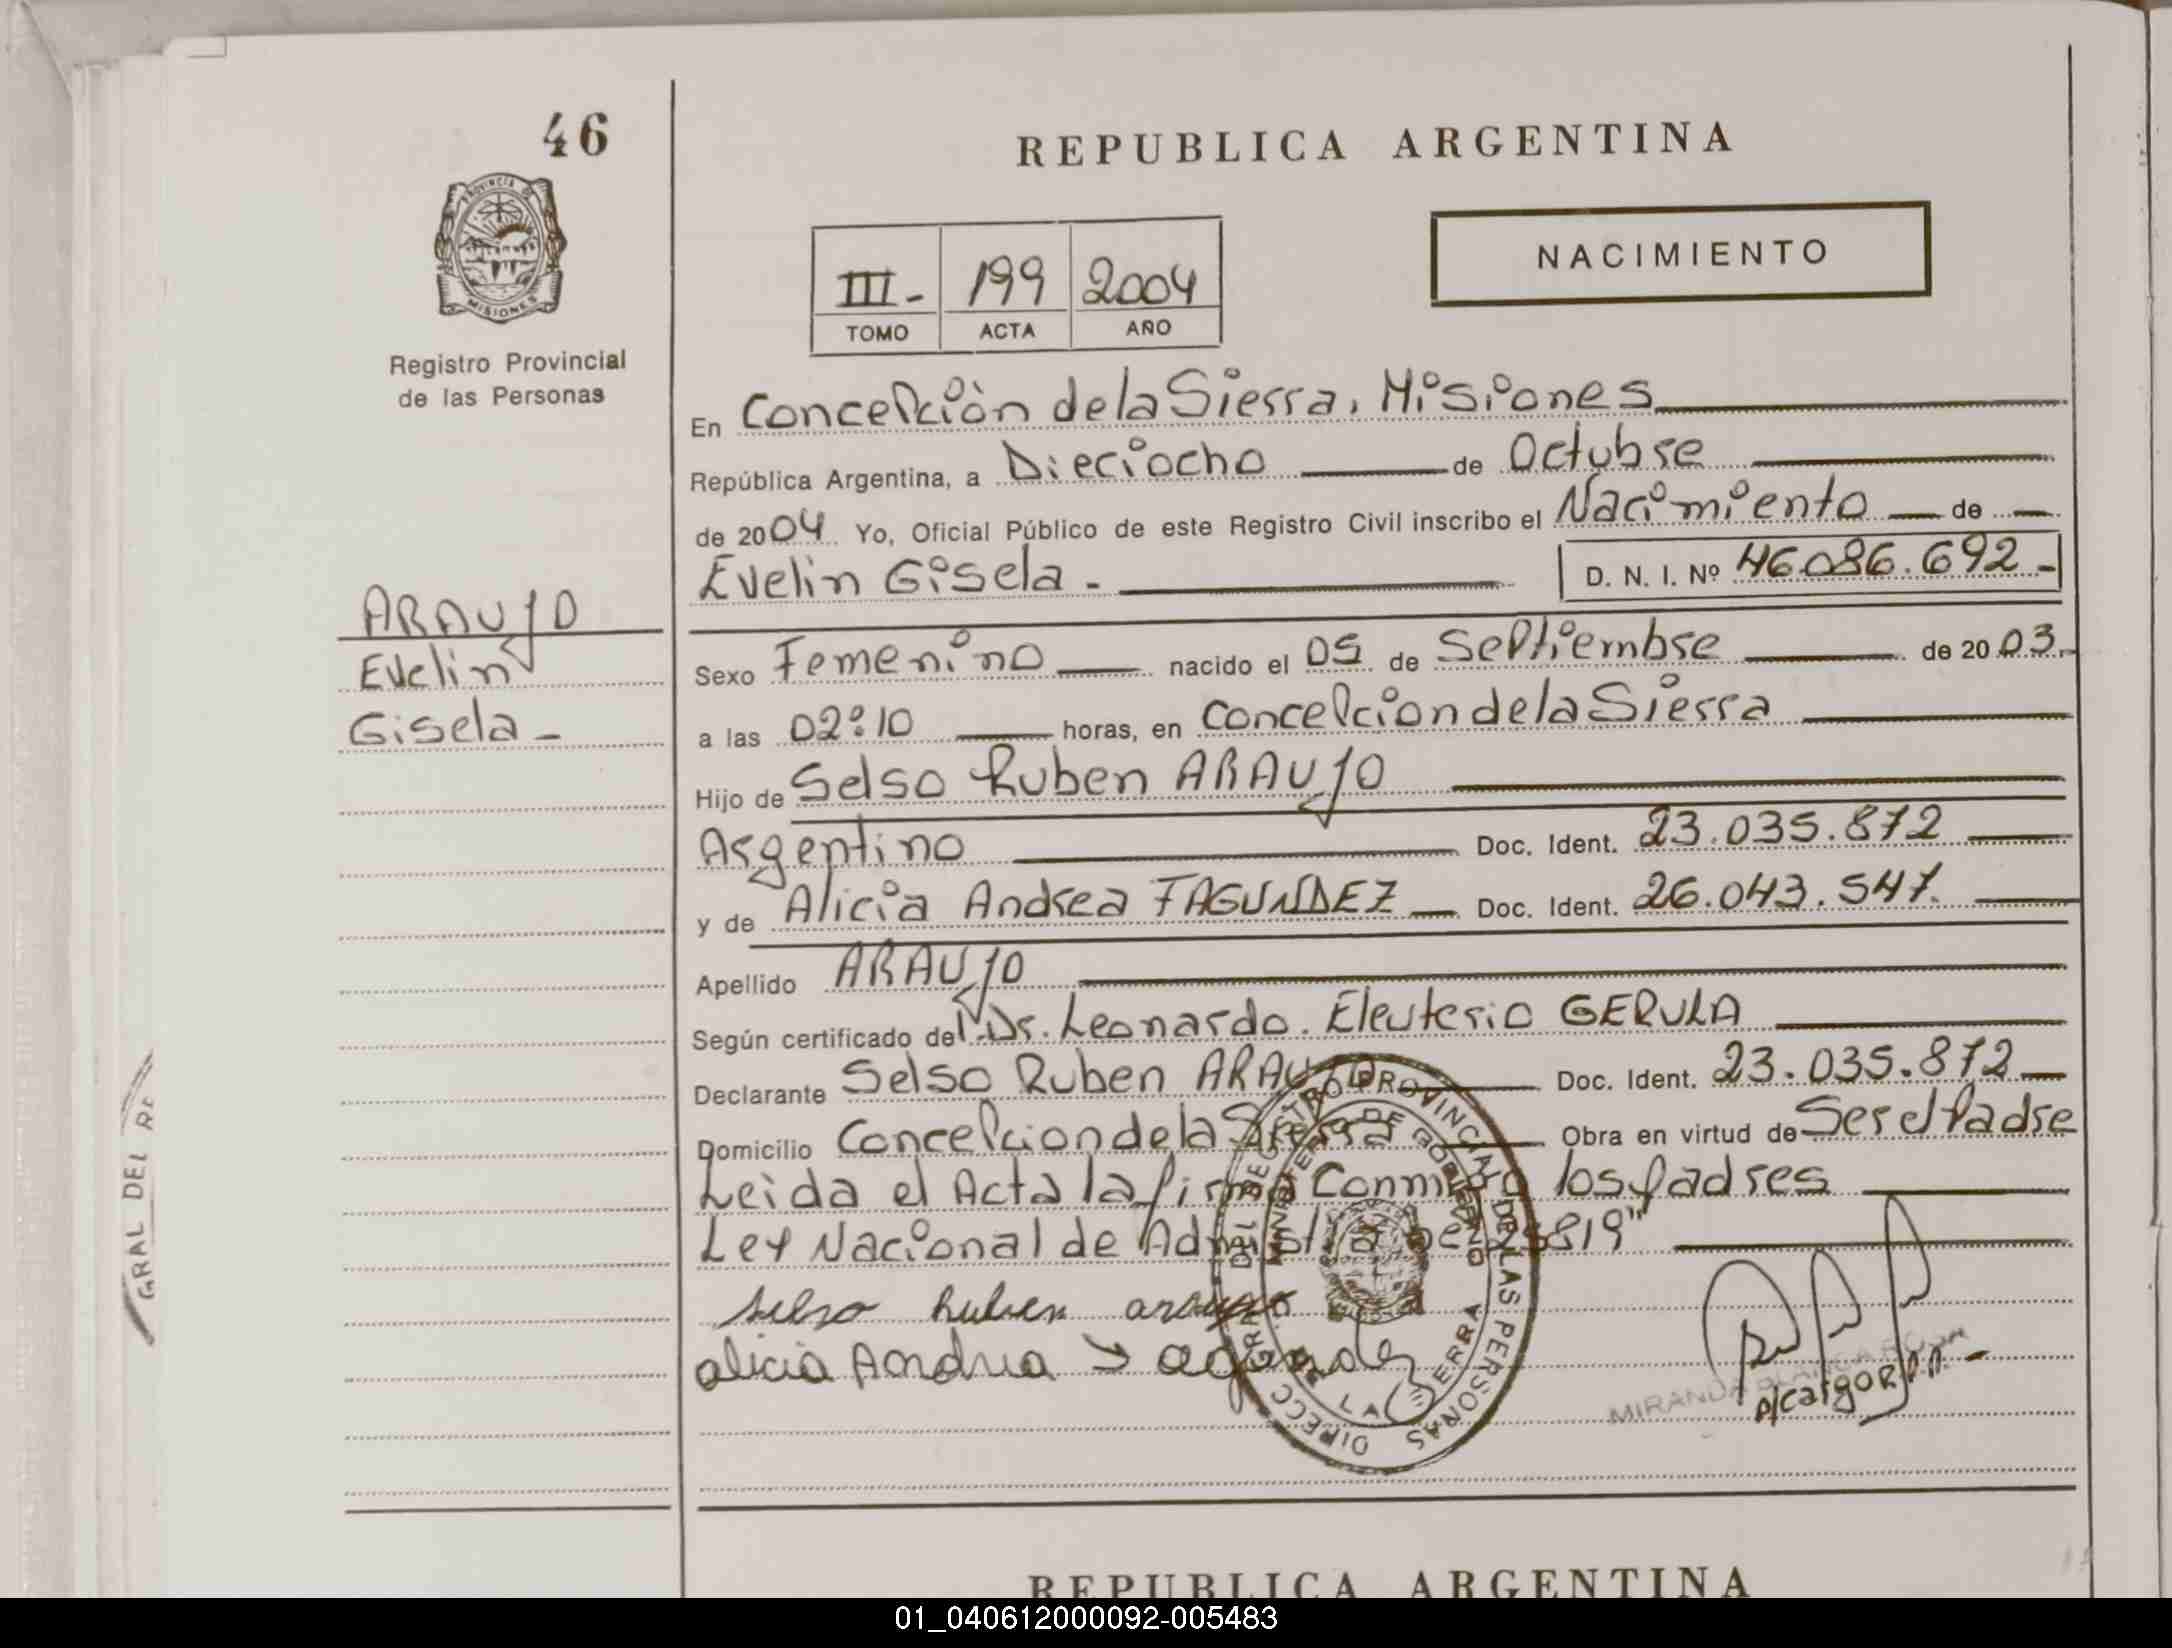 46
REPUBLICA ARGENTINA
PROVINCIA DE MISIONES
Registro Provincial
de las Personas
III - 199 2004
TOMO ACTA AÑO
NACIMIENTO
En Concepción de la Sierra, Misiones
República Argentina, a Dieciocho de Octubre
de 2004 Yo, Oficial Público de este Registro Civil inscribo el Nacimiento de
Evelin Gisela - D. N. I. Nº 46.086.692 -
ARAUJO
Evelin
Gisela -
Sexo Femenino nacido el 05 de Septiembre de 2003.-
a las 02:10 horas, en Concepcion de la Sierra
Hijo de Selso Ruben ARAUJO
Argentino Doc. Ident. 23.035.872
y de Alicia Andrea FAGUNDEZ Doc. Ident. 26.043.547.
Apellido ARAUJO
Según certificado del Dr. Leonardo. Eleuterio GERULA
Declarante Selso Ruben ARAUJO Doc. Ident. 23.035.872
Domicilio Concepcion de la Sierra Obra en virtud de Ser el Padre
Leida el Acta la firma Conmigo los padres
Ley Nacional de 819"
selso Ruben araujo
alicia Andrea
DIRECC GRAL DEL REGISTRO PROVINCIAL DE LAS PERSONAS
MINISTERIO DE GOBIERNO
LA SIERRA
MIRANDA BLANCA
a/cargo R.P.P. -
GRAL DEL RE
REPUBLICA ARGENTINA
01_040612000092-005483